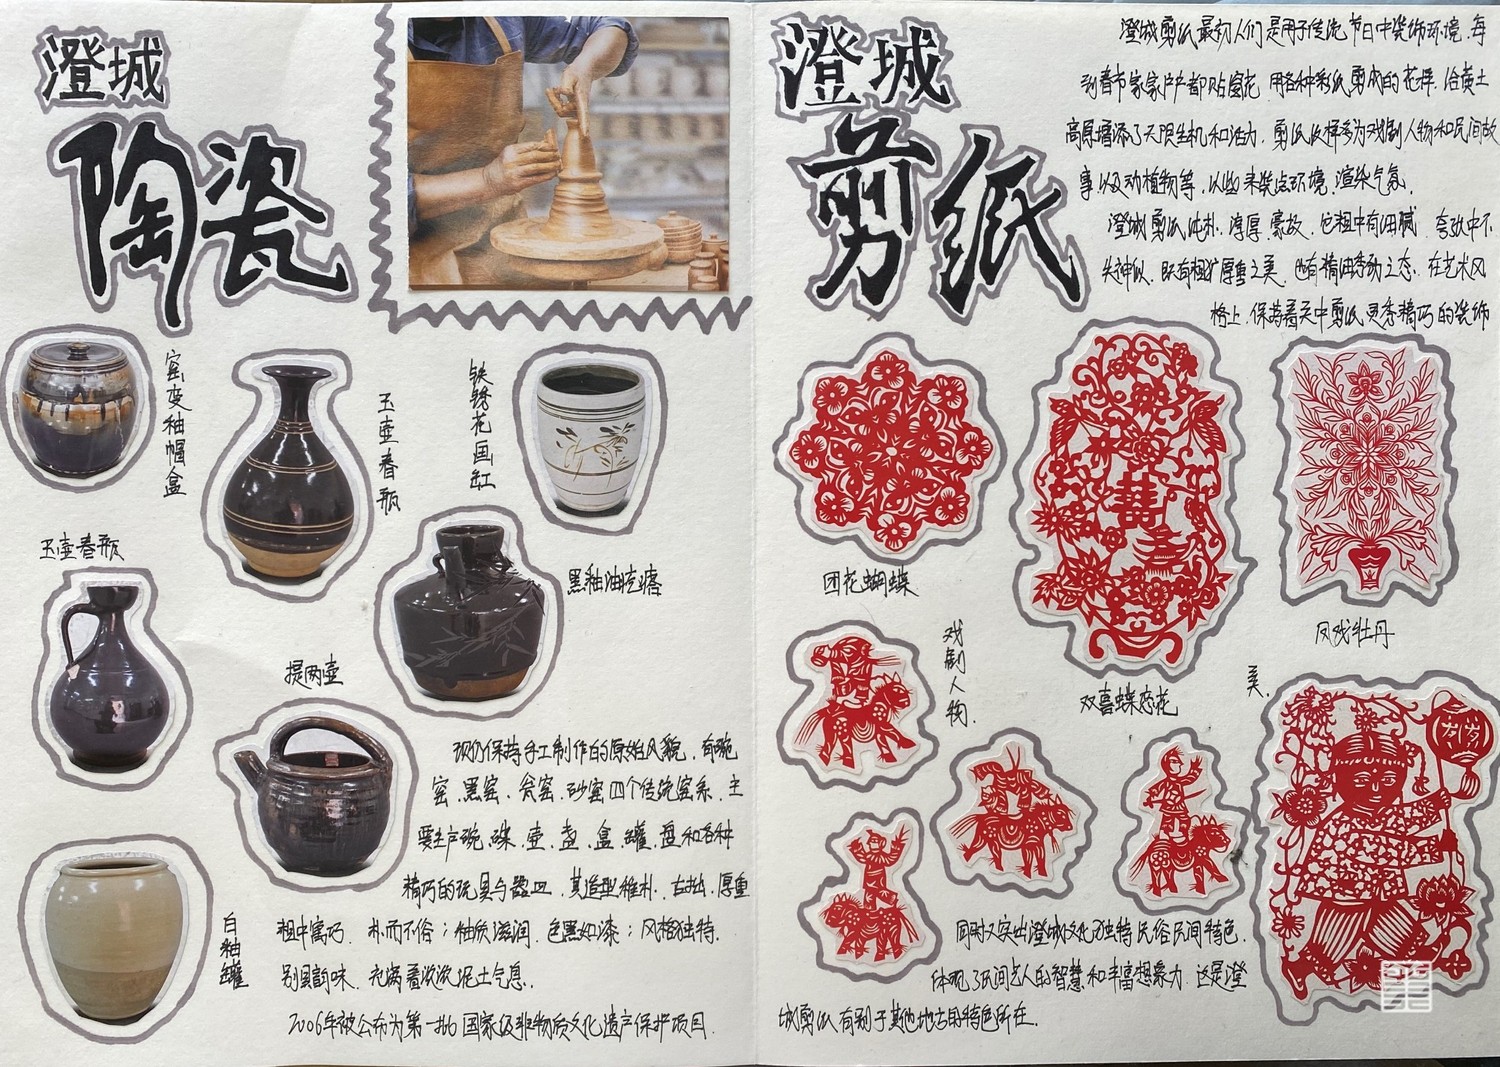 澄城
陶瓷
窑变釉帽盒
玉壶春瓶
铁锈花画缸
玉壶春瓶
黑釉油圪瘩
提两壶
白釉罐
现仍保持手工制作的原始风貌，有碗
窑、黑窑、瓮窑、砂窑四个传统窑系，主
要生产碗、碟、壶、盏、盒、罐、盘和各种
精巧的玩具与器皿，其造型稚朴、古拙，厚重
粗中寓巧，朴而不俗；釉质滋润，色黑如漆；风格独特，
别具韵味，充满着浓浓泥土气息。
2006年被公布为第一批国家级非物质文化遗产保护项目
澄城
剪纸
澄城剪纸最初人们是用于传统节日中装饰环境，每
到春节家家户户都贴窗花，用各种彩纸剪成的花样，给黄土
高原增添了无限生机和活力，剪纸纹样多为戏剧人物和民间故
事以及动植物等，以此来装点环境，渲染气氛。
澄城剪纸纯朴、淳厚、豪放，也粗中有细腻，夸张中不
失神似，既有粗犷厚重之美，也有精细秀动之态，在艺术风
格上，保持着关中剪纸灵秀精巧的装饰
美，
团花蝴蝶
双喜蝶恋花
凤戏牡丹
戏剧人物
同时又突出澄城文化独特民俗民间特色，
体现了民间艺人的智慧和丰富想象力，这是澄
城剪纸有别于其他地方的特色所在。